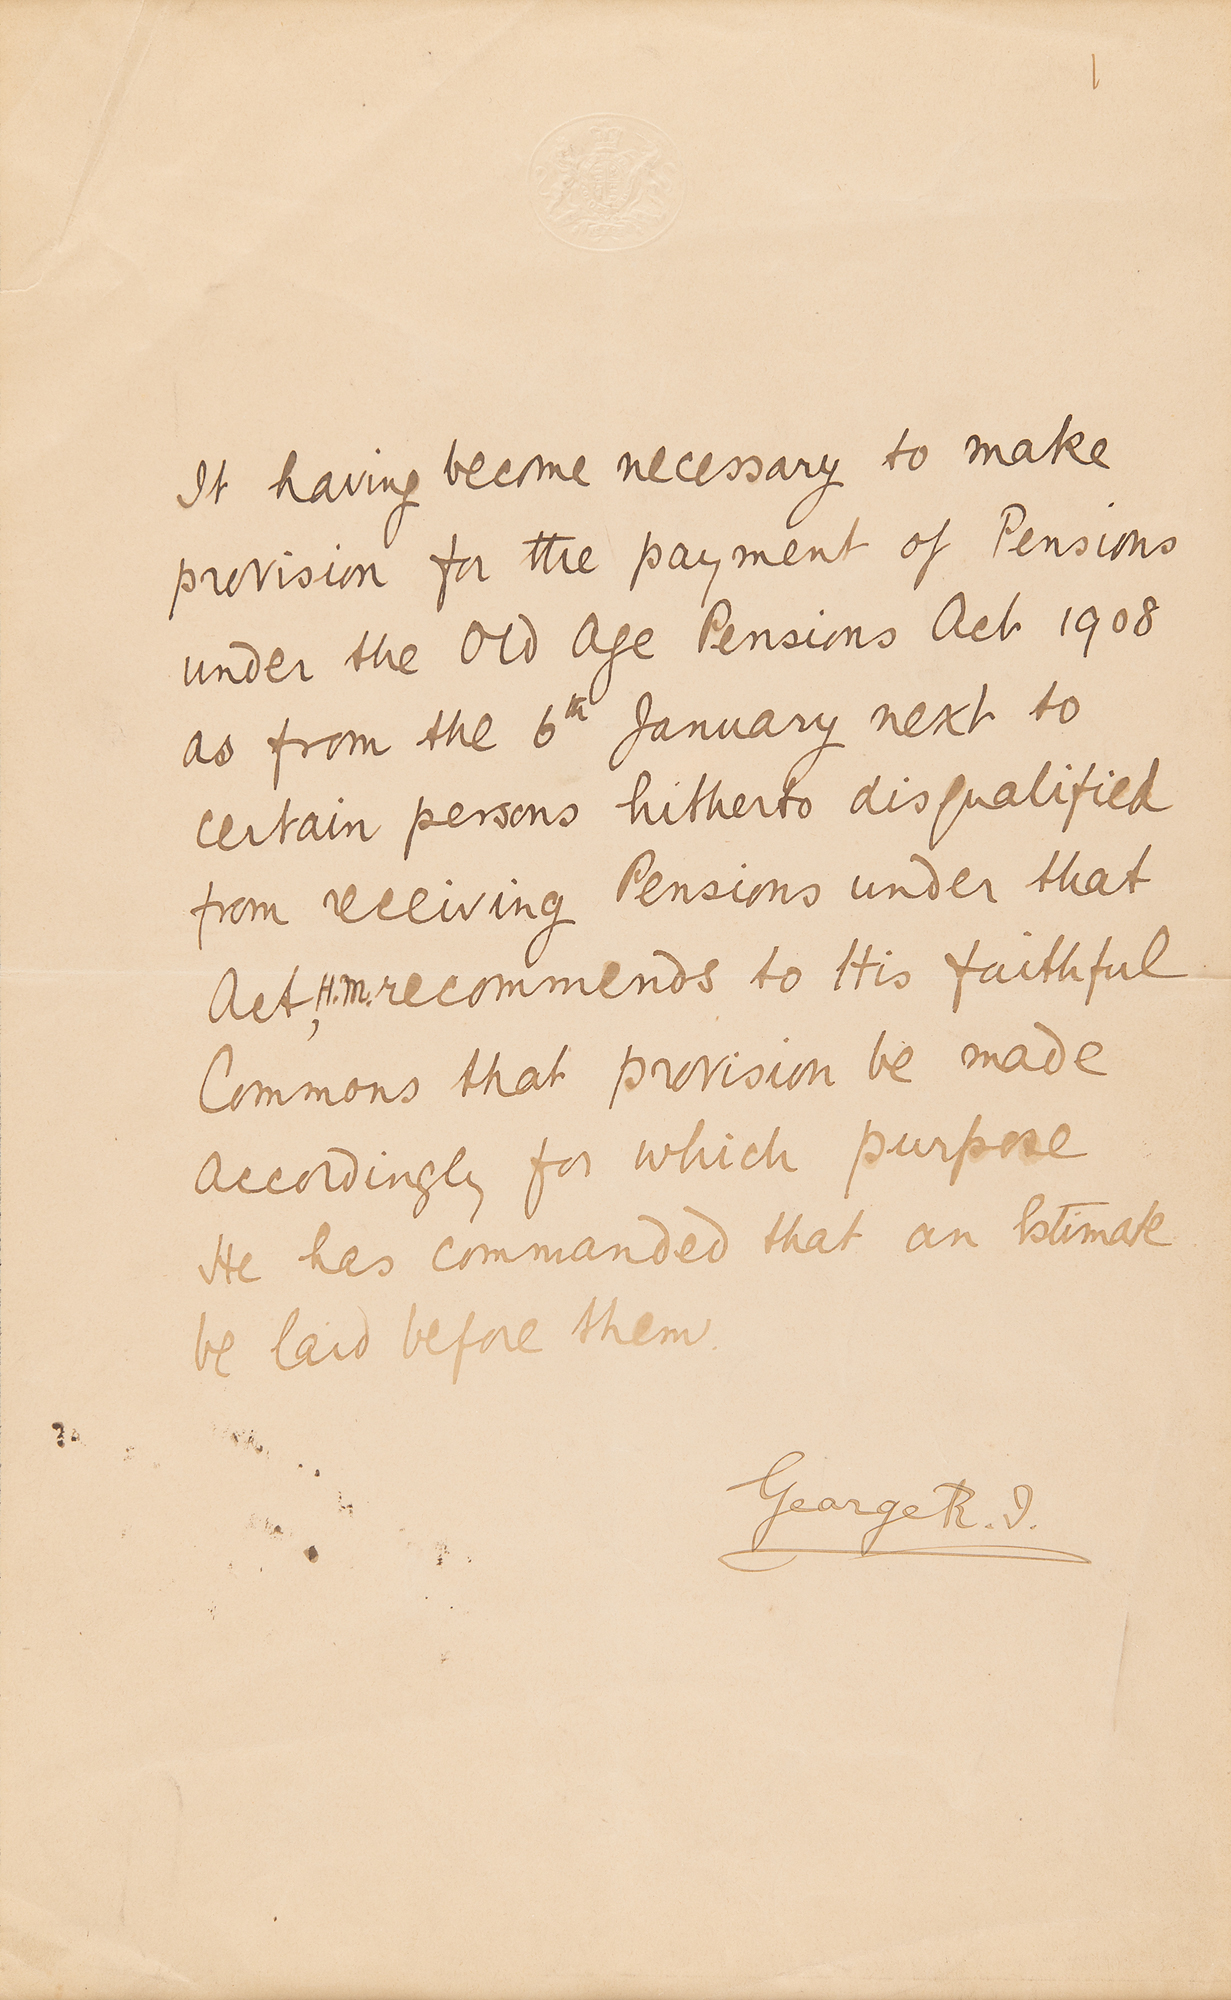 It having become necessary to make
provision for the payment of Pensions
under the Old Age Pensions Act 1908
as from the 6th January next to
certain persons hitherto disqualified
from receiving Pensions under that
Act, H.M. recommends to His faithful
Commons that provision be made
accordingly for which purpose
He has commanded that an Estimate
be laid before them.
George R. I.